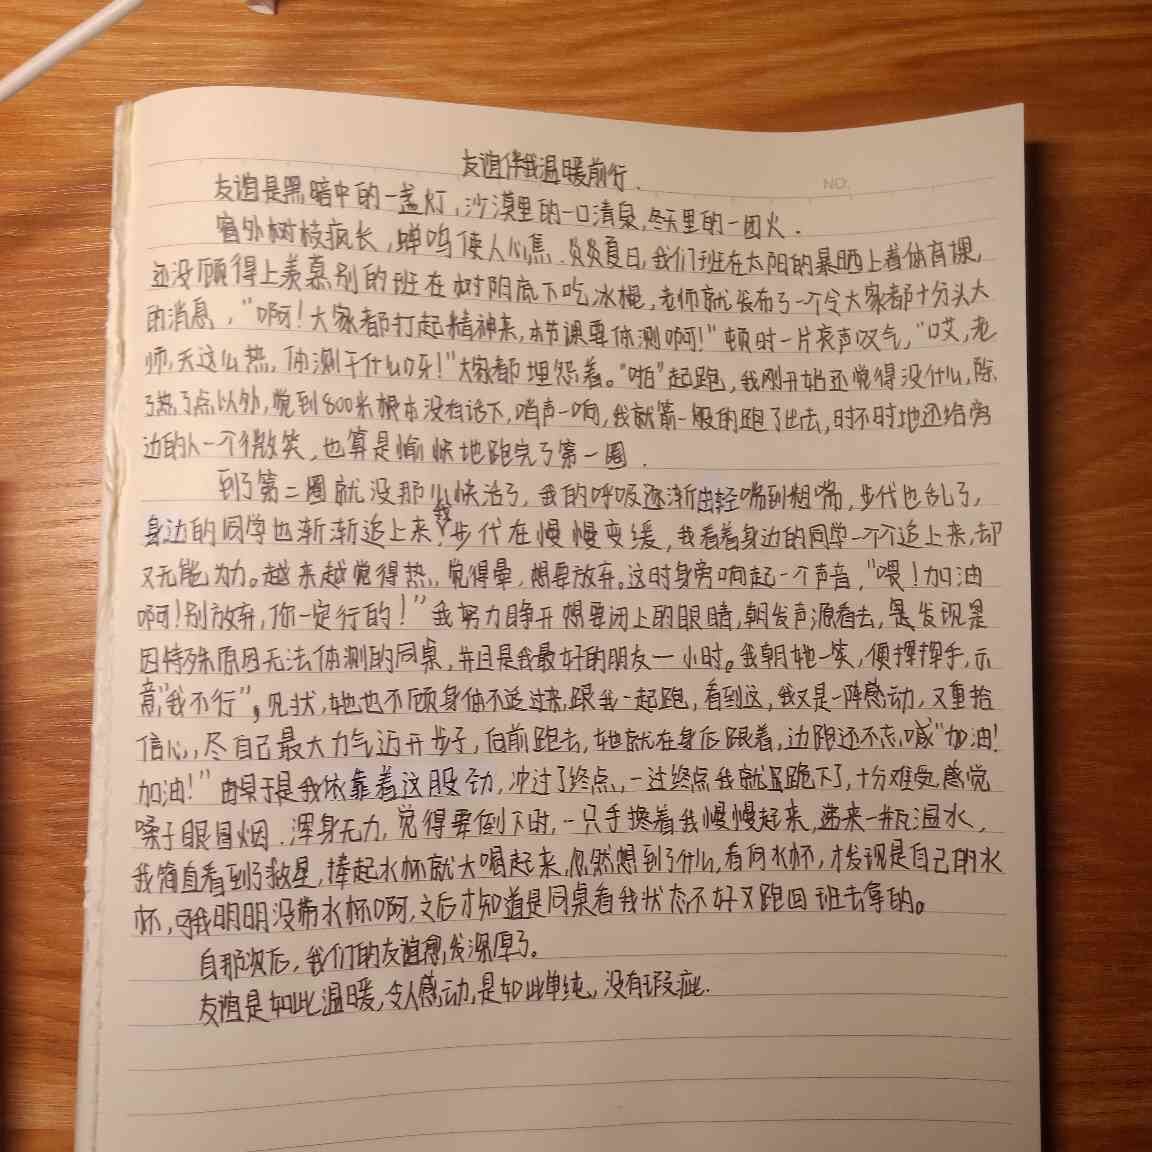 友谊伴我温暖前行.
NO.
友谊是黑暗中的一盏灯,沙漠里的一口清泉,冬天里的一团火.
窗外树枝疯长,蝉鸣使人心焦.炎炎夏日,我们班在太阳的暴晒上着体育课,
还没顾得上羡慕别的班在树阴底下吃冰棍,老师就发布了一个令大家都十分头大
的消息,“啊!大家都打起精神来,本节课要体测啊!”顿时一片哀声叹气,“哎,老
师,天这么热,体测干什么呀!”大家都埋怨着。“啪”起跑,我刚开始还觉得没什么,除
了热了点以外,觉到800米根本没有话下,哨声一响,我就箭一般的跑了出去,时不时地还给旁
边的人一个微笑,也算是愉快地跑完了第一圈.
到了第二圈就没那么快活了,我的呼吸逐渐由轻喘到粗喘,步代也乱了,
身边的同学也渐渐追上来,我步代在慢慢变缓,我看着身边的同学一个个追上来,却
又无能为力。越来越觉得热,觉得晕,想要放弃。这时身旁响起一个声音,“喂!加油
啊!别放弃,你一定行的!”我努力睁开想要闭上的眼睛,朝发声源看去,发现是
因特殊原因无法体测的同桌,并且是我最好的朋友一小时。我朝她一笑,便挥挥手,示
意“我不行”,见状,她也不顾身体不适过来跟我一起跑,看到这,我又是一阵感动,又重拾
信心,尽自己最大力气迈开步子,向前跑去,她就在身后跟着,边跑还不忘喊“加油!
加油!”于是我依靠着这股劲,冲过了终点,一过终点我就跪下了,十分难受,感觉
嗓子眼冒烟.浑身无力,觉得要倒下时,一只手搀着我慢慢起来,递来一瓶温水,
我简直看到了救星,捧起水杯就大喝起来,忽然想到了什么,看向水杯,才发现是自己的水
杯,可我明明没带水杯啊,之后才知道是同桌看我状态不好又跑回班去拿的。
自那次后,我们的友谊愈发深厚了。
友谊是如此温暖,令人感动,是如此单纯,没有瑕疵.